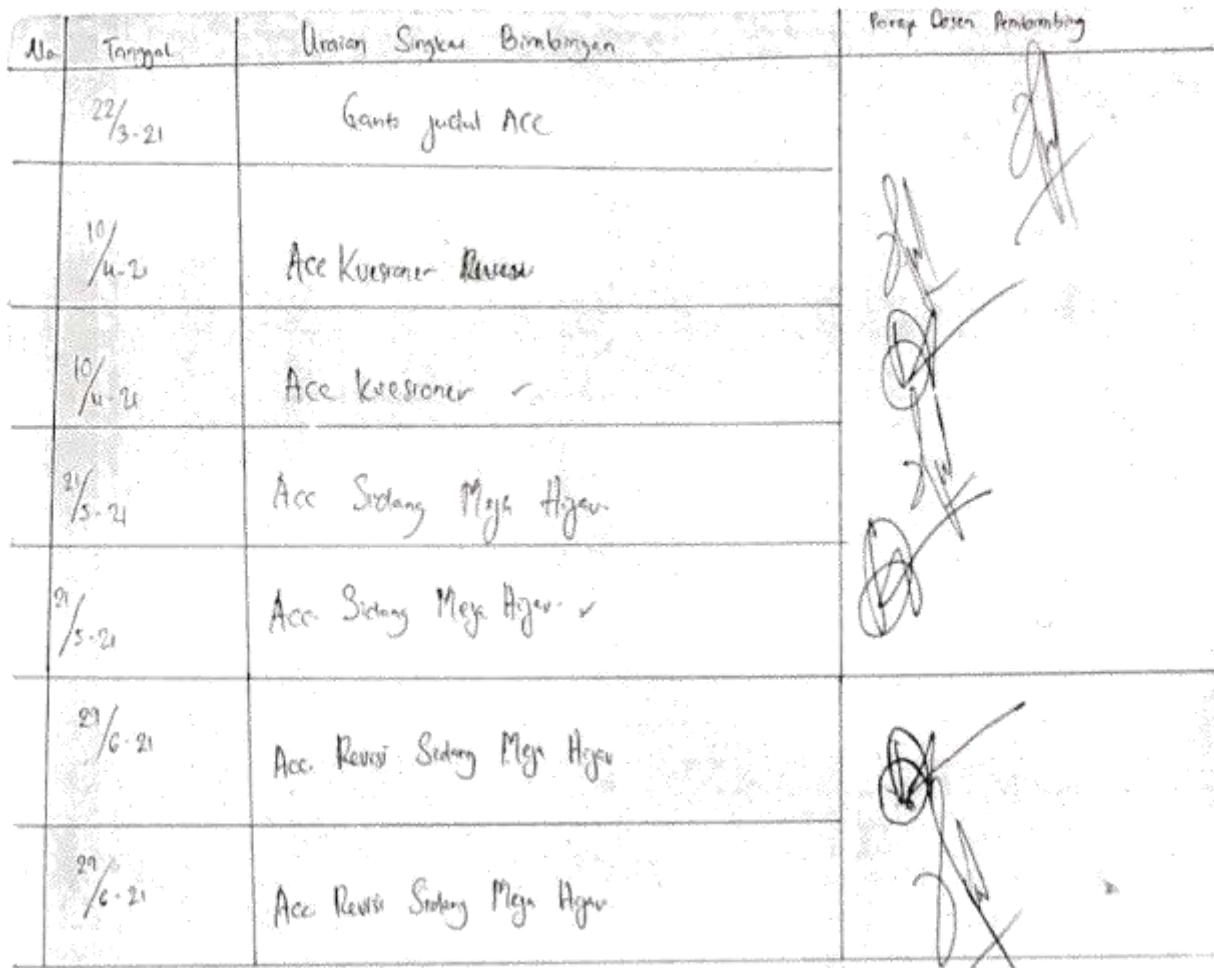 No Tanggal Uraian Singkat Bimbingan Parap Dosen Pembimbing
22/3-21 Ganti judul ACC
10/4-21 Acc Kuesioner Revisi
10/4-21 Acc Kuesioner ✓
21/5-21 Acc Sidang Meja Hijau
21/5-21 Acc. Sidang Meja Hijau ✓
29/6-21 Acc. Revisi Sidang Meja Hijau
29/6-21 Acc. Revisi Sidang Meja Hijau